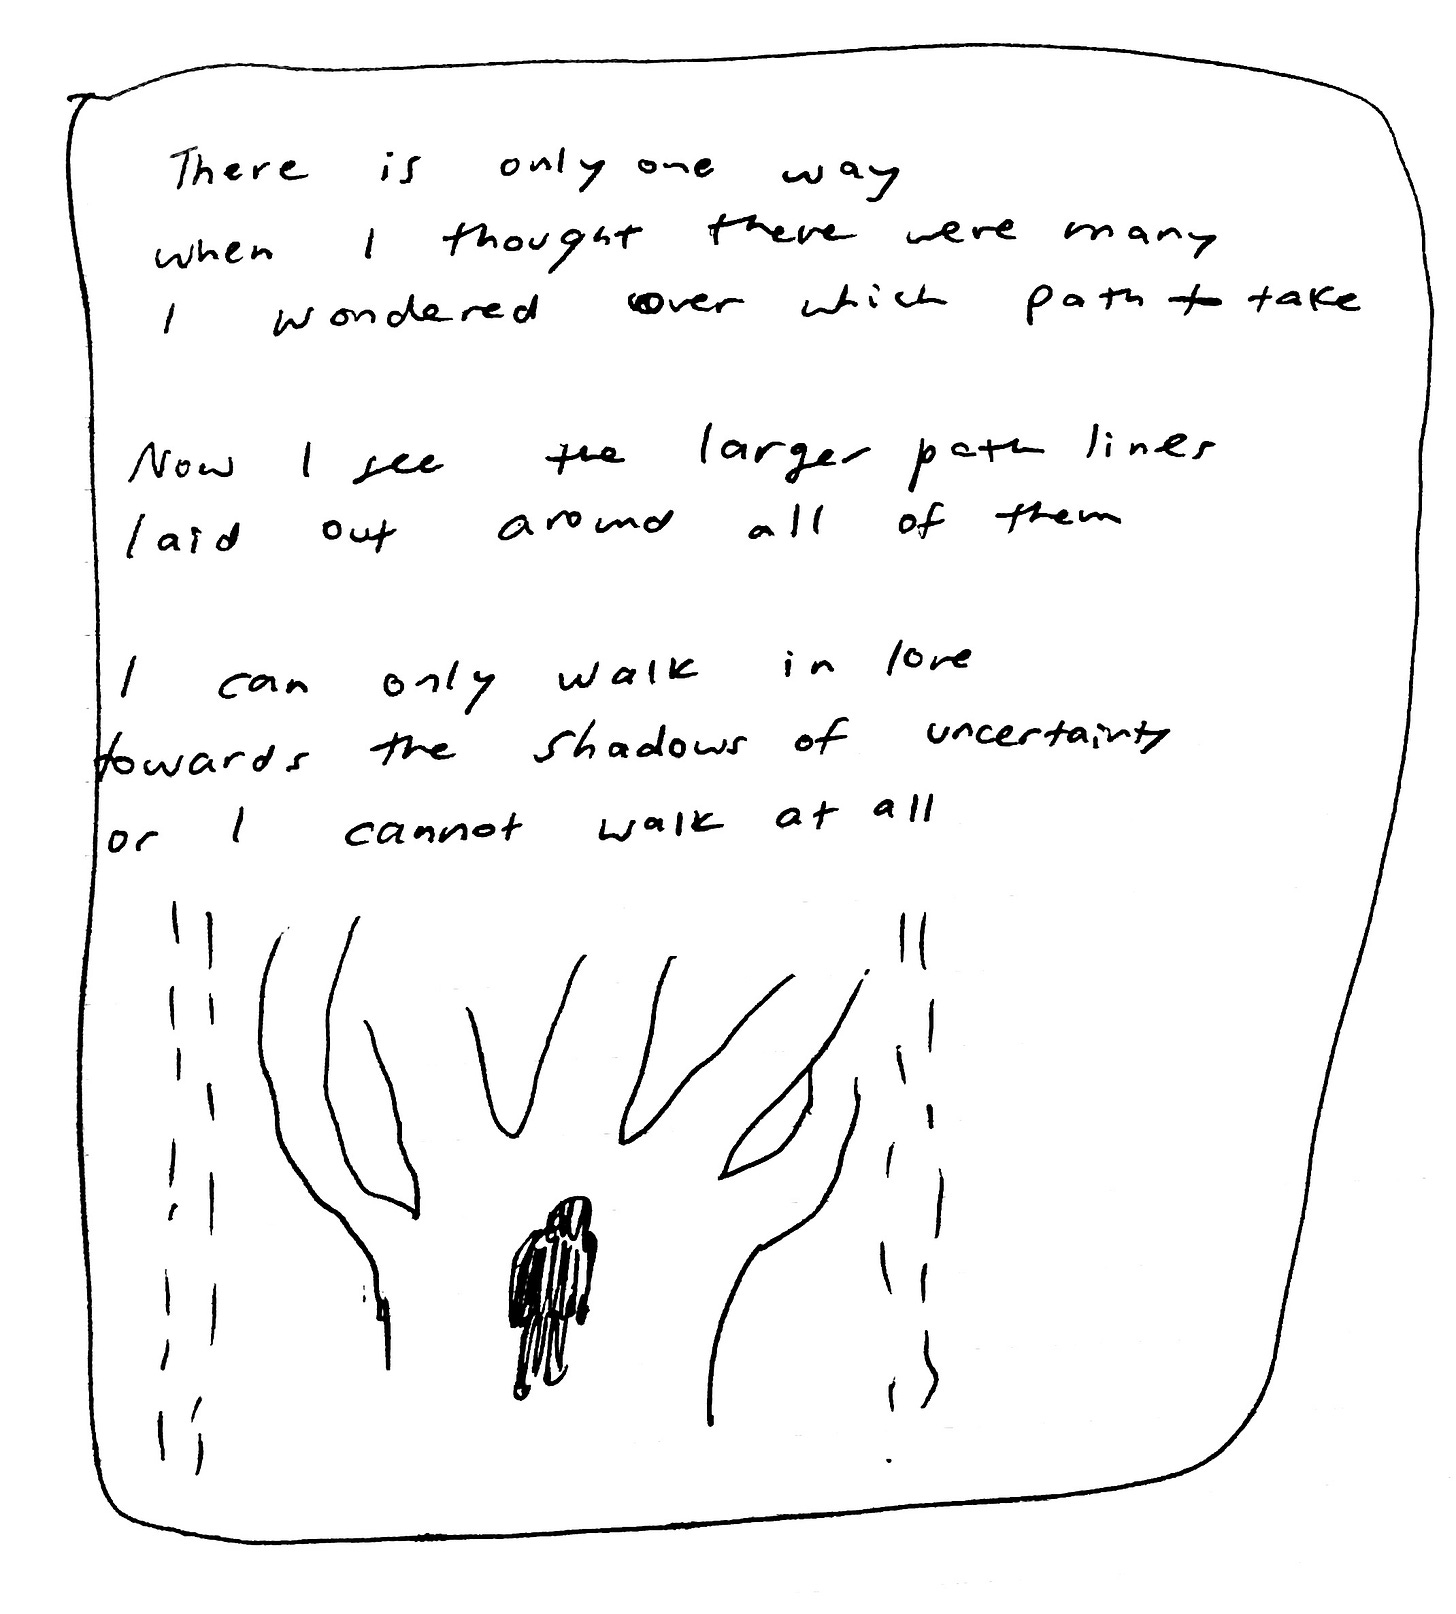 There is only one way
when I thought there were many
I wondered over which path to take
Now I see the larger path lines
laid out around all of them
I can only walk in love
towards the shadows of uncertainty
or I cannot walk at all